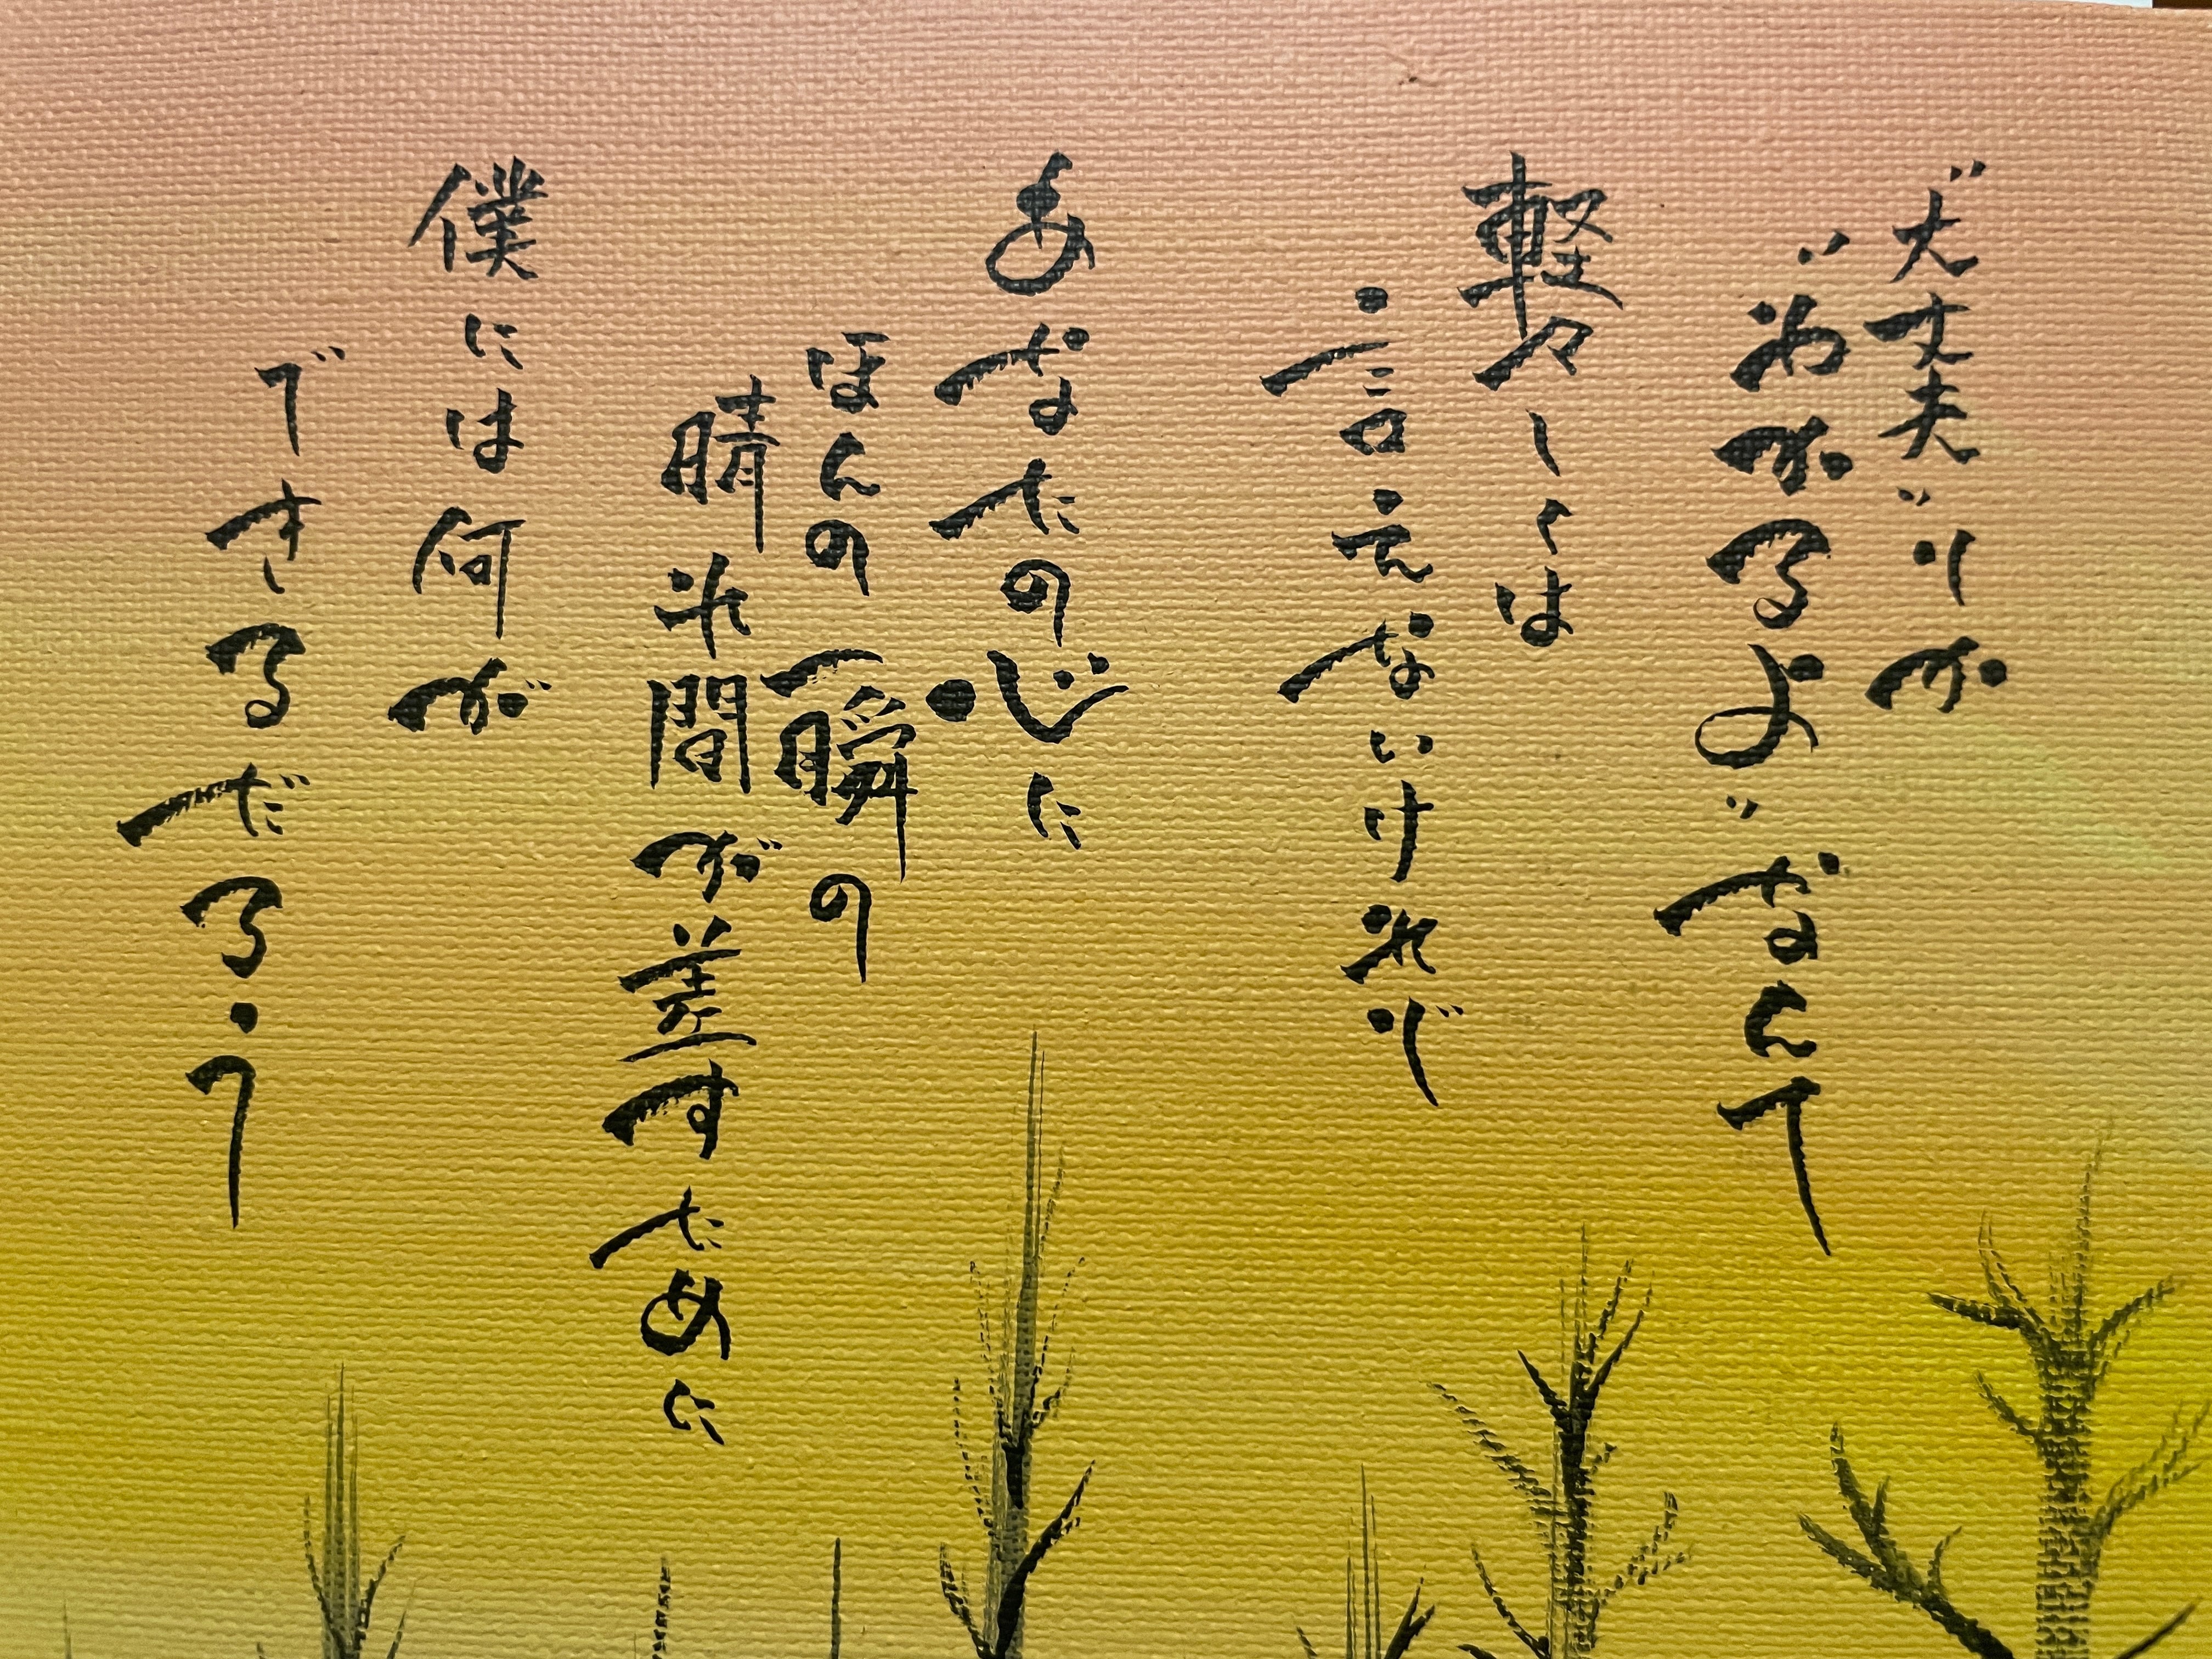 “大丈夫”とか
“わかるよ”なんて
軽々しくは
言えないけれど
あなたの心に
ほんの一瞬の
晴れ間が差すために
僕には何が
できるだろう